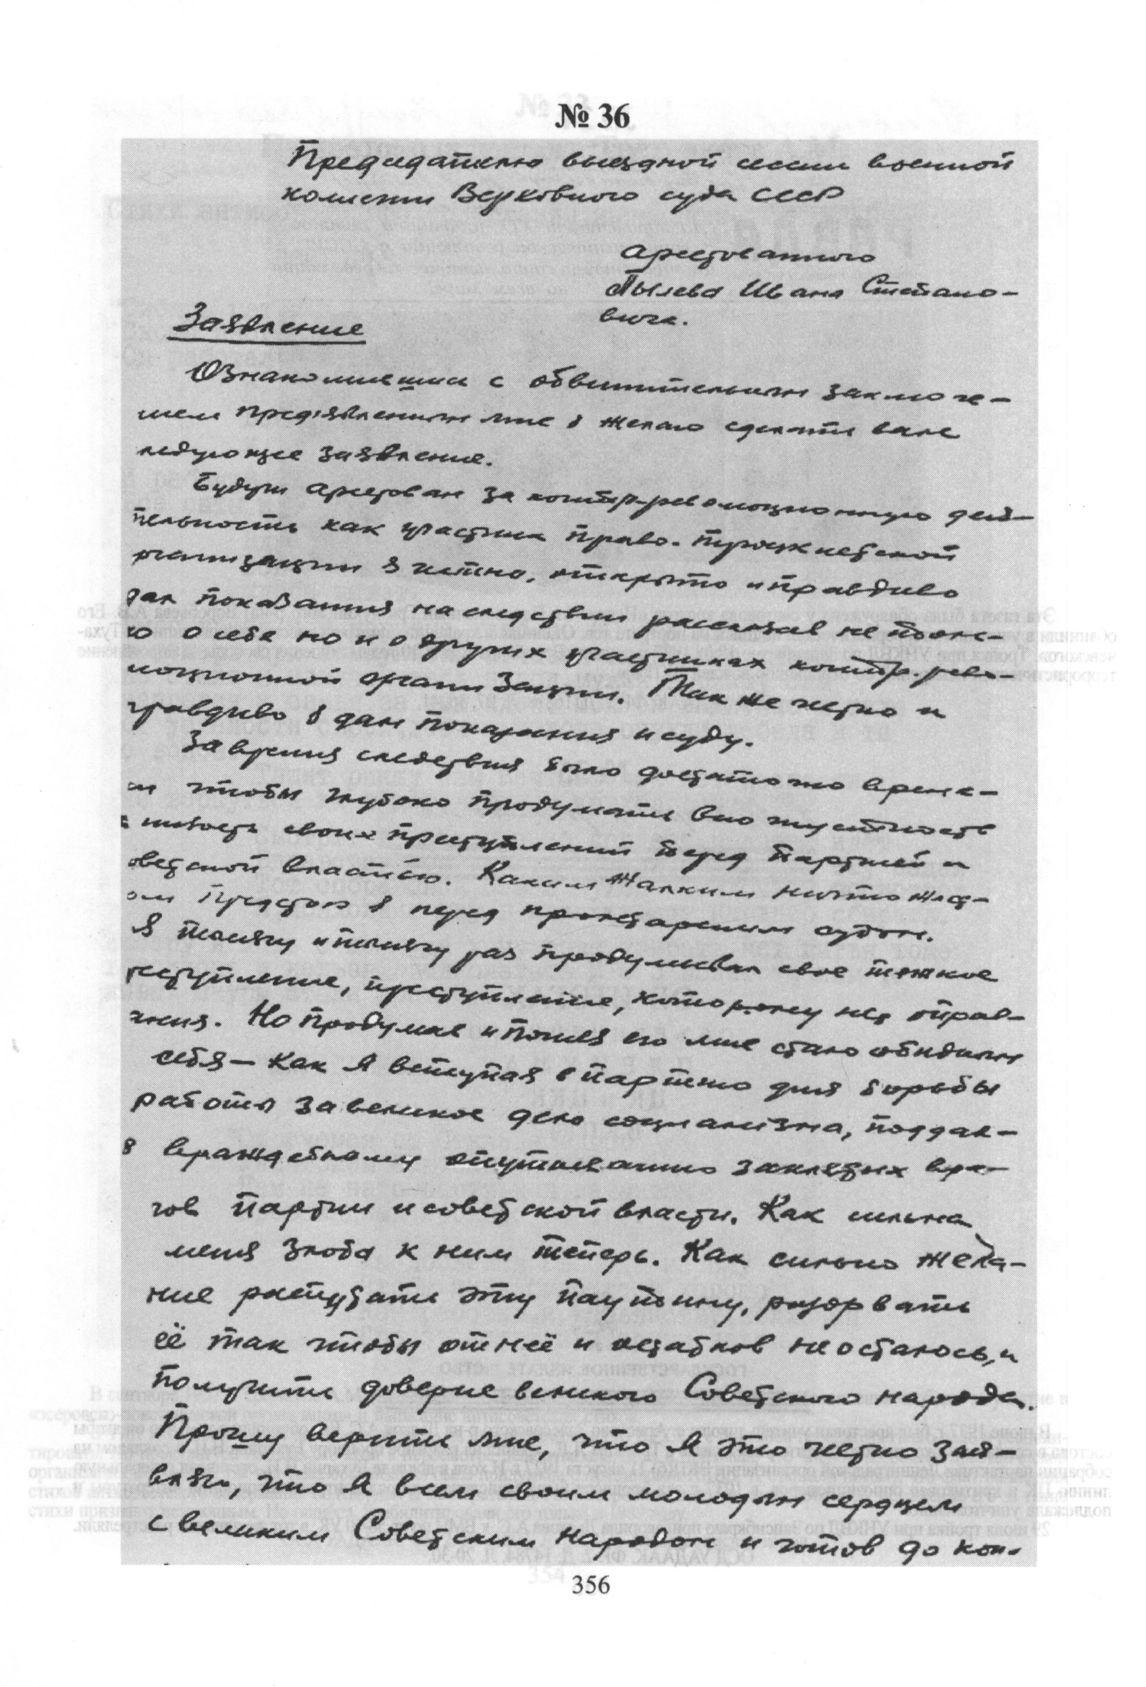 № 36
Председателю выездной сессии военной
колегии Верховного суда СССР
арестованного
Пылева Ивана Степано-
вича.
Заявление
Ознакомившись с обвинительным заключе-
нием предявленным мне я желаю сделать вам
ледующее заявление.
Будучи арестован за контр-революционную дея-
тельность как участник право-троцкистской
рганизации я честно, открыто и правдиво
дал показания на следствии рассказав не толь-
ко о себе но и о других участниках контр. рево-
люционной организации. Так же четко и
правдиво я дам показания и суду.
За время следствия было достаточно време-
ни чтобы глубоко продумать всю гнусность
низость своих преступлений перед партией и
оветской властью. Каким жалким ничтожест-
ом предстою я перед пролетарским судом.
Я тысячу и тысячу раз продумывал свое тяжкое
реступление, преступление, которому нет оправ-
ания. Но продумав и поняв его мне стало обидным
себя — как я вступая в партию для борьбы
работы за великое дело социализма, поддал-
я враждебному опутыванию заклятых вра-
гов партии и советской власти. Как сильна
меня злоба к ним теперь. Как сильно жела-
ние распутать эту паутину, разорвать
её так чтобы от неё и остатков не осталось, и
получить доверие великого Советского народа.
Прошу верить мне, что я это четко заяв-
вляю, что я всем своим молодым сердцем
с великим Советским народом и готов до кон-
356